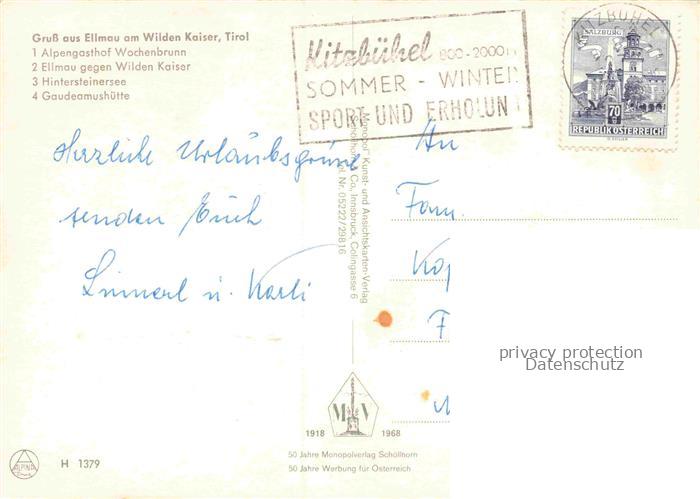 Gruß aus Ellmau am Wilden Kaiser, Tirol
1 Alpengasthof Wochenbrunn
2 Ellmau gegen Wilden Kaiser
3 Hintersteinersee
4 Gaudeamushütte
Kitzbühel 800-2000
SOMMER - WINTER
SPORT UND ERHOLUN
KITZBÜHEL
SALZBURG
70
REPUBLIK ÖSTERREICH
Herzliche Urlaubsgrüße
senden Euch
u. Karli
An
Fam.
Monopol Kunst- und Ansichtskarten-Verlag
Co, Innsbruck, Colingasse 6
Nr. 05222/29816
privacy protection
Datenschutz
M V
1918 1968
50 Jahre Monopolverlag Schöllhorn
50 Jahre Werbung für Österreich
ALPINA
H 1379